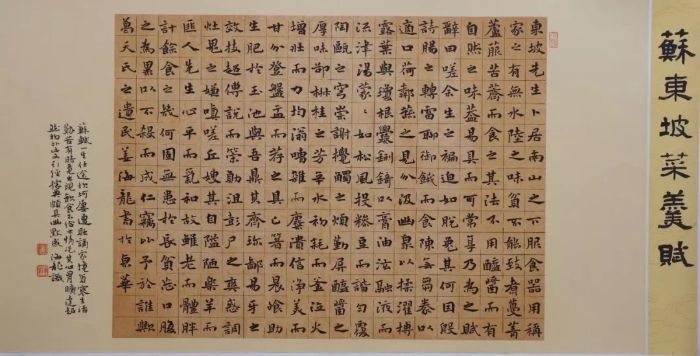 蘇東坡菜羹賦
東坡先生卜居南山之下服食器用稱
家之有無水陸之味貧不能致煮蔓菁
蘆菔苦薺而食之其法不用醯醬而有
自然之味蓋易具而可常享乃為之賦
辭曰嗟余生之褊迫如脫兔其何因殷
詩腸之轉雷聊御餓而食陳無芻豢以
適口荷鄰蔬之見分汲幽泉以揉濯摶
露葉與瓊根爨鉶錡以膏油泫融液而
流津湯蒙蒙如松風投糝豆而諧勻覆
陶甌之穹崇謝攪觸之煩勤屏醯醬之
厚味卻椒桂之芳辛水初耗而釜泣火
增壯而力均滃嘈雜而麋潰信淨美而
甘分登盤盂而薦之具匕箸而晨飧助
生肥於玉池與吾鼎其齊珍鄙易牙之
效技超傅說而策勳沮彭尸之爽惑調
灶鬼之嫌嗔嗟丘嫂其自隘陋樂羊而
匪人先生心平而氣和故雖老而體胖
計餘食之幾何固無患於長貧忘口腹
之為累以不殺而成仁竊比予於誰歟
葛天氏之遺民姜海龍書於京華
蘇軾一生仕途坎坷屢遭貶謫家境貧寒生活
艱苦有時竟出現飲食不給之情況其心胸曠達超
然物外此文引經據典頗具幽默感 海龍識